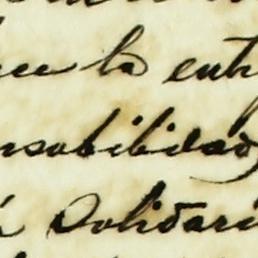 la entr
nsabilidad
Solidari